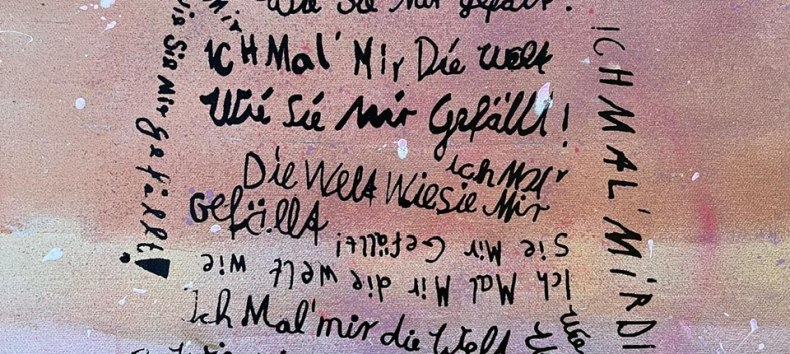 Wie Sie Mir gefällt!
ICH Mal' Mir Die Welt
Wie Sie Mir Gefällt!
ich Mal'
Die Welt Wie sie Mir
Gefällt
Ich Mal Mir die Welt wie
Sie Mir Gefällt!
Ich Mal' mir die Welt
Wie
Mir
Wie Sie Mir gefällt!
ICH MAL' MIR DI